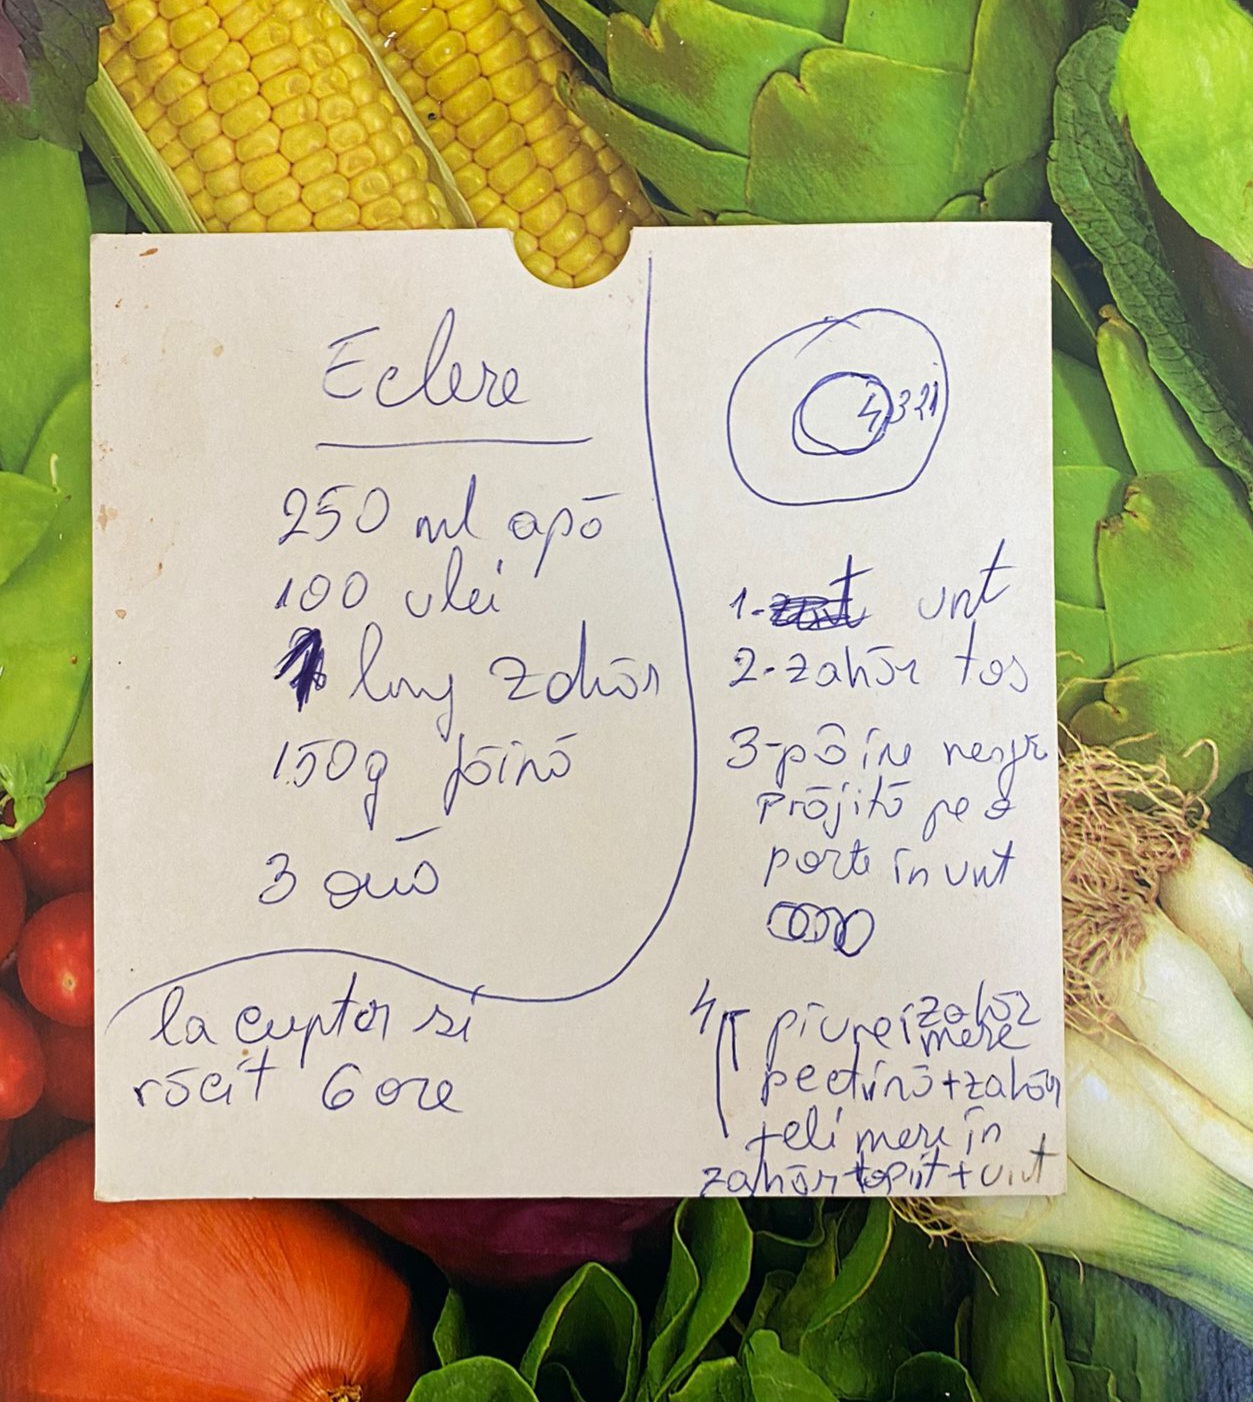 Eclere
250 ml apă
100 ulei
1 ling zahăr
150g făină
3 ouă
la cuptor si
răcit 6 ore
4 3 2 1
1- unt
2-zahăr tos
3-pâine neagră
prăjită pe o
parte in unt
4 piure i zahăr
mere
pectină+zahăr
+eli mere în
zahăr topit+unt